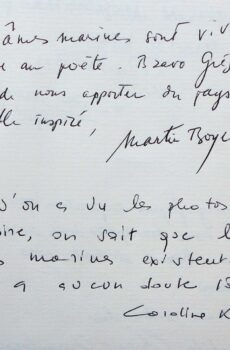 âmes marines sont viv
au poète. Bravo Grég
de nous apporter du pays
inspiré,
Martin Boye
u'on a vu les photos
oire, on sait que l
s marines existent
a aucun doute là
Caroline K